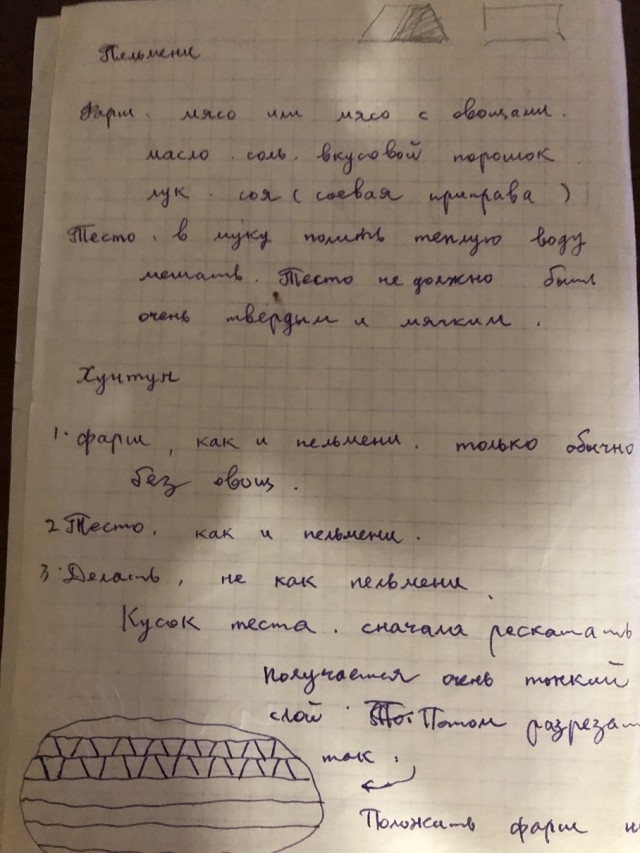 Пельмени
Фарш. мясо или мясо с овощами.
масло. соль. вкусовой порошок.
лук. соя (соевая приправа)
Тесто. в муку полить теплую воду
мешать. Тесто не должно быть
очень твёрдым и мягким.
Хунтун
1. фарш, как и пельмени. только обычно
без овощ.
2 Тесто. как и пельмени.
3. Делать, не как пельмени.
Кусок теста. сначала рескатать
Получается очень тонкий
слой. Потом разрезат
так.
Положить фарш н